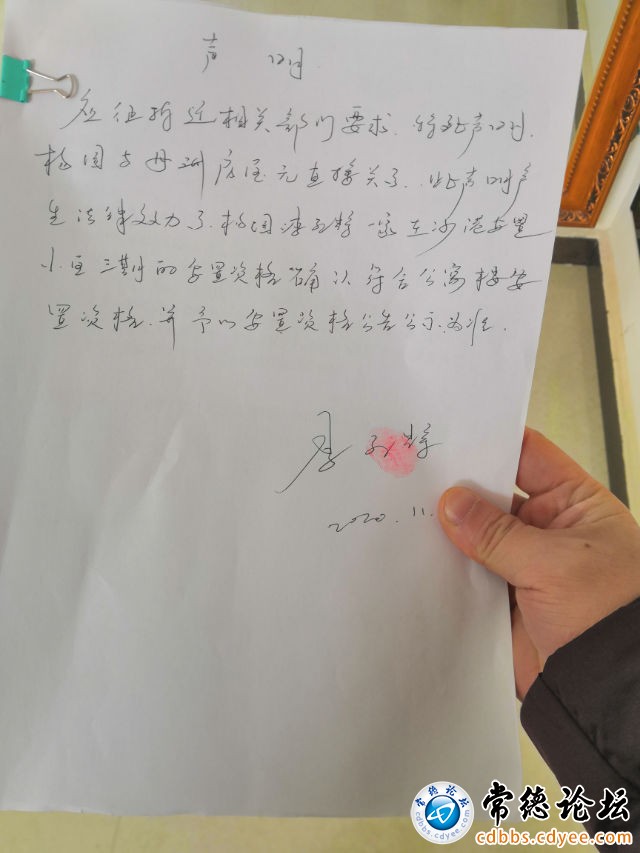 声 明
应征拆迁相关部门要求.特此声明.
杨国与母 房屋无直接关系.此声明产
生法律效力了.杨国 一家在沙港安置
小区三期的安置资格确认符合公寓楼安
置资格.并予以安置资格公告公示为准.
2020.11.
常德论坛
cdbbs.cdyee.com